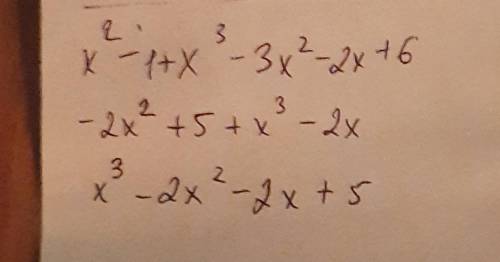 x² - 1 + x³ - 3x² - 2x + 6
-2x² + 5 + x³ - 2x
x³ - 2x² - 2x + 5